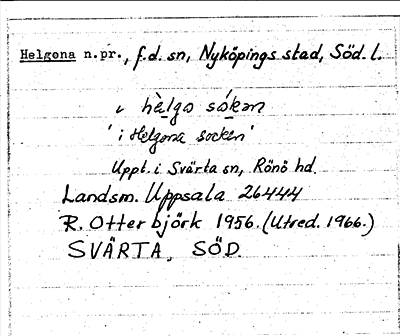 Helgona n.pr., f.d. sn, Nyköpings stad, Söd. l.
i hèlga sókən
'i Helgona socken'
Uppt. i Svärta sn, Rönö hd.
Landsm. Uppsala 26444
R. Otterbjörk 1956. (Utred. 1966.)
SVÄRTA, SÖD.